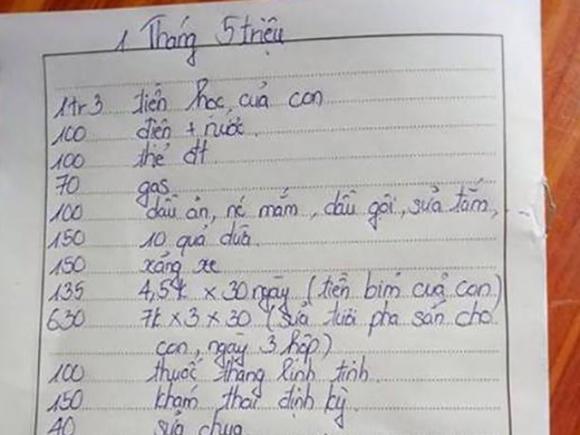 1 Tháng 5 triệu
1tr3 tiền học của con
100 điện + nước
100 thẻ đt
70 gas
100 dầu ăn, nc mắm, dầu gội, sữa tắm, ...
150 10 quả dừa
150 xăng xe
135 4,5k x 30 ngày (tiền bỉm của con)
630 7k x 3 x 30 (sữa tươi pha sẵn cho
con, ngày 3 hộp)
100 thuốc thang linh tinh
150 khám thai định kỳ
40 sữa chua